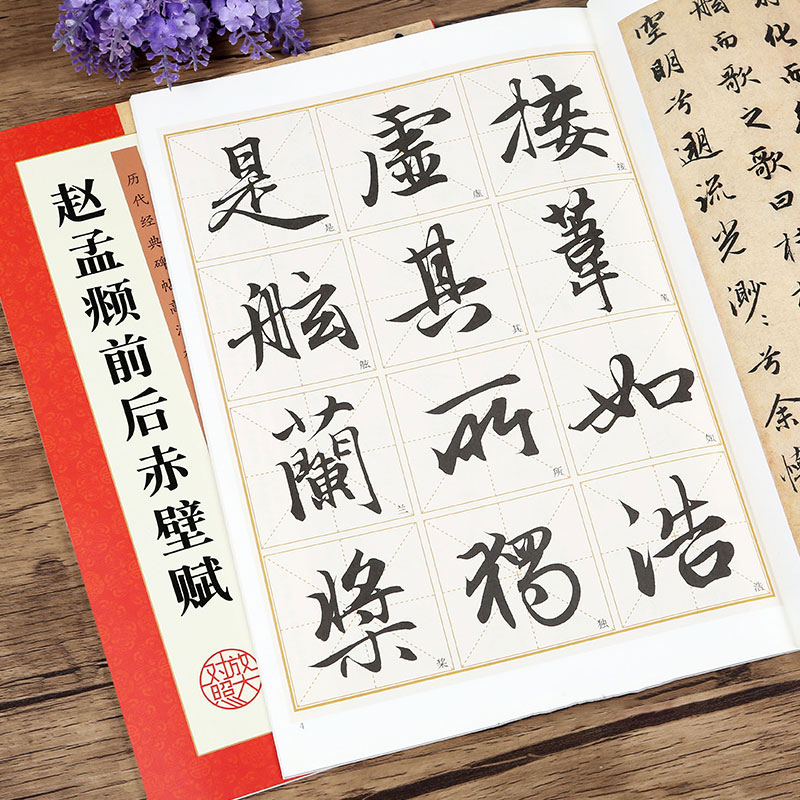 赵孟𫖯前后赤壁赋
历代经典碑帖高清
放大
对照
接 葦 如 浩
虛 其 所 獨
是 舷 蘭 槳
接 苇 如 浩
虚 其 所 独
是 舷 兰 桨
4
化而
舷而歌之歌曰桂
空明兮遡流光渺〻兮余懷